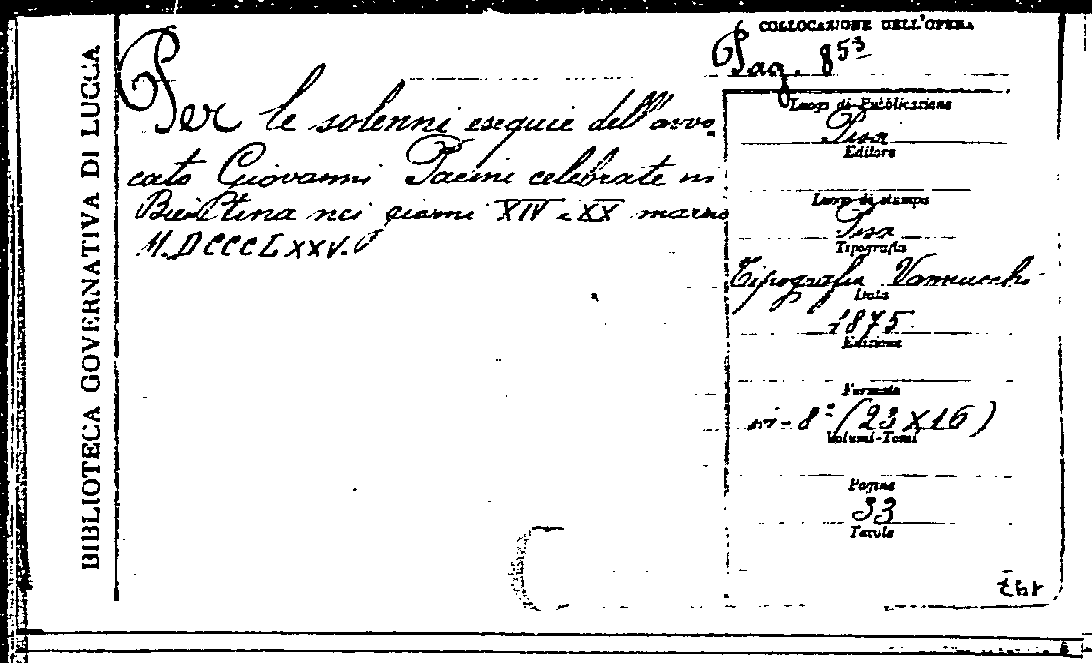 BIBLIOTECA GOVERNATIVA DI LUCCA
Per le solenni esequie dell'avvo-
cato Giovanni Pacini celebrate in
Bientina nei giorni XIV e XX marzo
M.DCCCLXXV.
COLLOCAZIONE DELL'OPERA
Pag. 853
Luogo di Pubblicazione
Pisa
Editore
Luogo di stampa
Pisa
Tipografia
Tipografia Vannucchi
Data
1875
Edizione
Formato
in-8° (23X16)
Volumi-Tomi
Pagine
33
Tavole